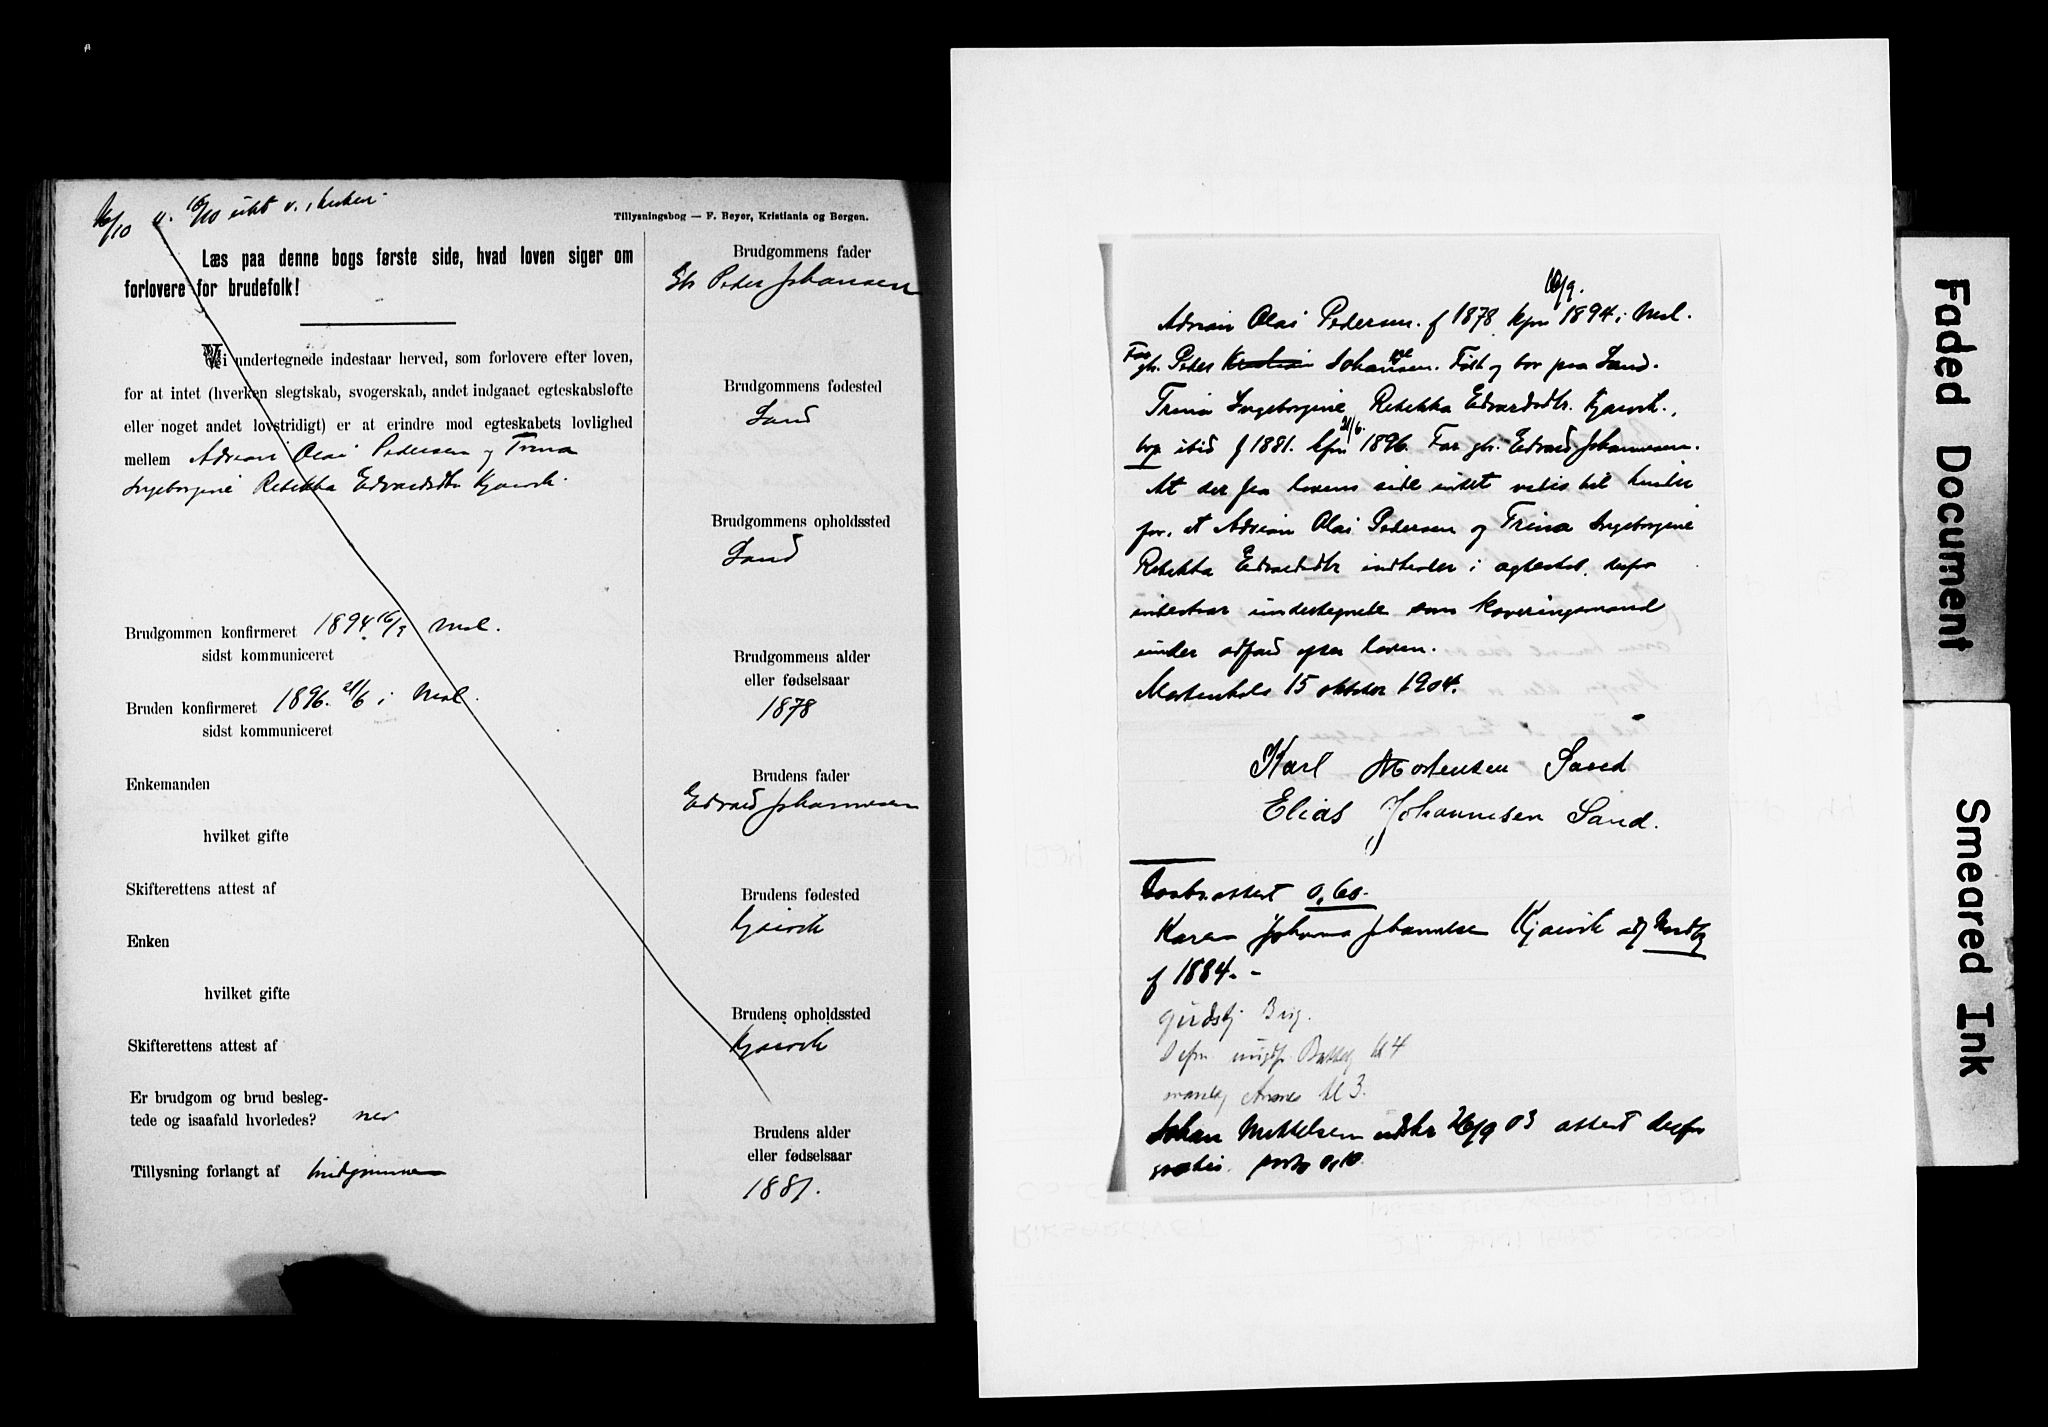 16/10 u. 16/10 utst v.
Tillysningsbog — F. Beyer, Kristiania og Bergen.
Læs paa denne bogs første side, hvad loven siger om
forlovere for brudefolk!
Vi undertegnede indestaar herved, som forlovere efter loven,
for at intet (hverken slegtskab, svogerskab, andet indgaaet egteskabsløfte
eller noget andet lovstridigt) er at erindre mod egteskabets lovlighed
mellem Adrian Olai Pedersen og Trina
Ingeborgine Rebekka Edvardsdtr Kjærvik.
Brudgommen konfirmeret 1894 16/9 Mel.
sidst kommuniceret
Bruden konfirmeret 1896. 21/6 i Mel.
sidst kommuniceret
Enkemanden
hvilket gifte
Skifterettens attest af
Enken
hvilket gifte
Skifterettens attest af
Er brudgom og brud besleg-
tede og isaafald hvorledes? nei
Tillysning forlangt af brudgommen
Brudgommens fader
Gbr Peder Johansen
Brudgommens fødested
Sand
Brudgommens opholdssted
Sand
Brudgommens alder
eller fødselsaar
1878
Brudens fader
Edvard Johannesen
Brudens fødested
Kjærvik
Brudens opholdssted
Kjærvik
Brudens alder
eller fødselsaar
1881.
16/9.
Adrian Olai Pedersen. f 1878 kfm 1894 i Mel.
Far gbr. Peder Kristian Johansen. Født og bor paa Sand.
Trina Ingeborgine Rebekka Edvardsdtr. Kjærvik.,
21/6.
bop ibid f 1881. kfm 1896. Far gbr. Edvard Johannesen.
At der fra lovens side intet vides til hinder
for, at Adrian Olai Pedersen og Trina Ingeborgine
Rebekka Edvardsdtr indtræder i ægteskab, derfor
indestaar undertegnede som kaveringsmænd
under adfærd efter loven.
Mortenhals 15 oktober 1904.
Karl Mortensen Sand
Elias Johannesen Sand.
Daabsattest 0,60.
Karen Johanna Johannesen Kjærvik adg Nordby
f 1884. -
M 4
M 3.
Johan Mikkelsen udskr 26/9 03 attest derfor
gratis. porto 0,10.
Faded Document
Smeared Ink